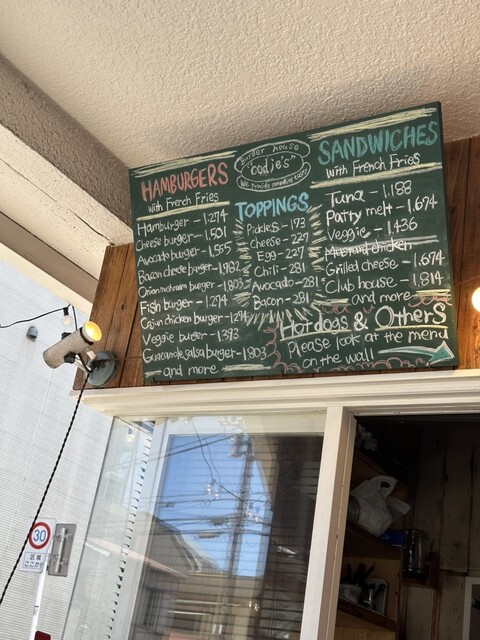 Burger house
"codje's"
We provide something tasty
HAMBURGERS
with French Fries
Hamburger - 1,274
Cheese burger - 1,501
Avocado burger - 1,555
Bacon cheese burger - 1,982
Onion mushroom burger - 1,803
Fish burger - 1,274
Cajun chicken burger - 1,274
Veggie burger - 1,393
Guacamole, salsa burger - 1,803
and more
TOPPINGS
Pickles - 173
Cheese - 227
Egg - 227
Chili - 281
Avocado - 281
Bacon - 281
SANDWICHES
with French Fries
Tuna - 1,188
Patty melt - 1,674
Veggie - 1,436
Mustard chicken
Grilled cheese - 1,674
Club house - 1,814
and more
Hotdogs & OtherS
Please look at the menu
on the wall
30
区域
ここから